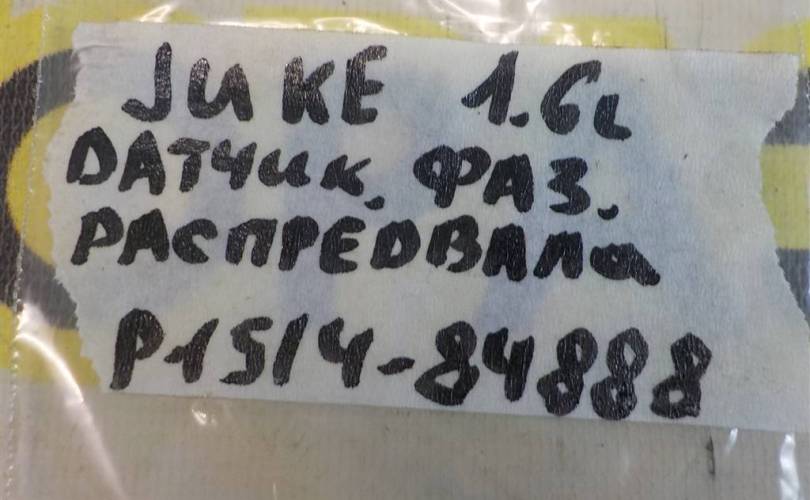 JUKE 1.6L
DATчик. ФАЗ.
РАСПРЕDВАЛа
P15/4-84888